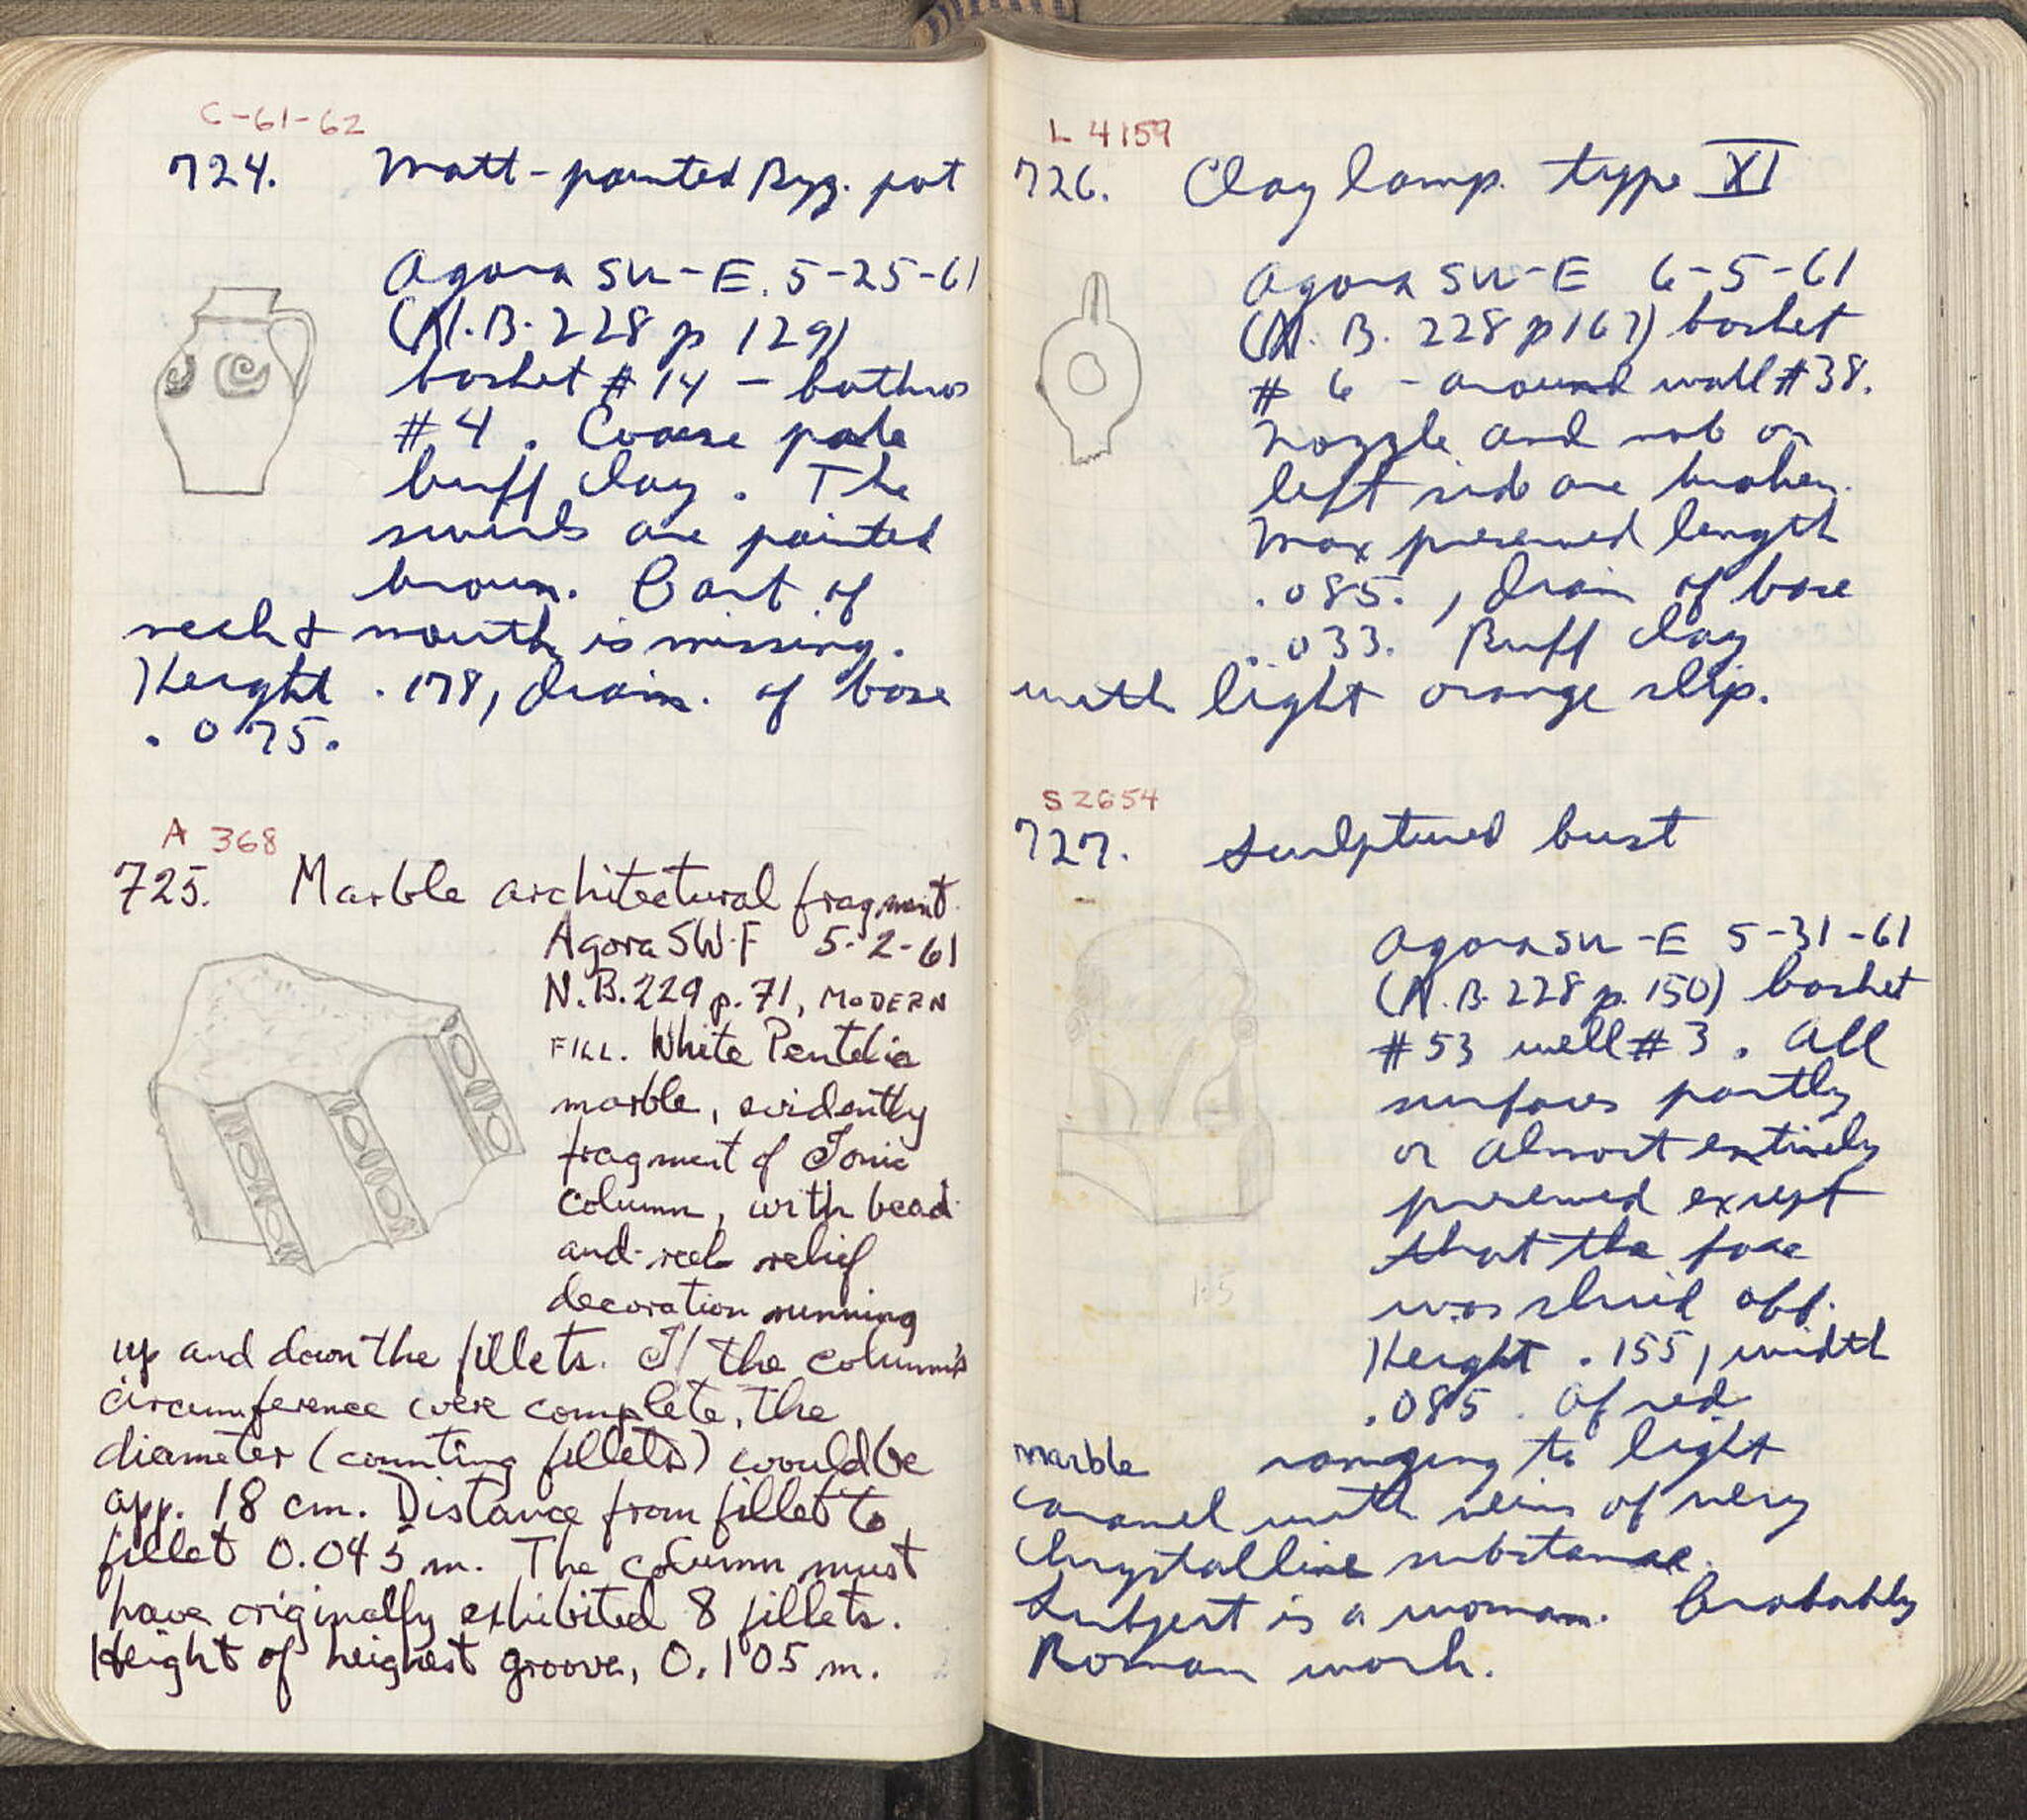 C-61-62
724. Matt-painted Byz. pot
Agora SW-E. 5-25-61
(N.B. 228 p 129)
basket #14 – bothros
#4. Coarse pale
buff clay. The
swirls are painted
brown. Part of
neck & mouth is missing.
Height .178, diam. of base
.075.
A 368
725. Marble architectural fragment.
Agora SW-F 5-2-61
N.B. 229 p. 71, MODERN
FILL. White Pentelic
marble, evidently
fragment of Ionic
column, with bead-
and-reel relief
decoration running
up and down the fillets. If the column's
circumference were complete, the
diameter (counting fillets) would be
app. 18 cm. Distance from fillet to
fillet 0.045 m. The column must
have originally exhibited 8 fillets.
Height of heighest groove, 0.105 m.
L 4159
726. Clay lamp. type XI
Agora SW-E 6-5-61
(N.B. 228 p 167) basket
#6 – around wall #38.
Nozzle and nob on
left side are broken.
Max preserved length
.085., diam of base
.033. Buff clay
with light orange slip.
S 2654
727. Sculptured bust
Agora SW-E 5-31-61
(N.B. 228 p. 150) basket
#53 well #3. All
surfaces partly
or almost entirely
preserved except
that the face
was sliced off.
Height .155, width
.085. Of red
marble ranging to light
caramel with veins of very
chrystalline substance.
Subject is a woman. Probably
Roman work.
1:5